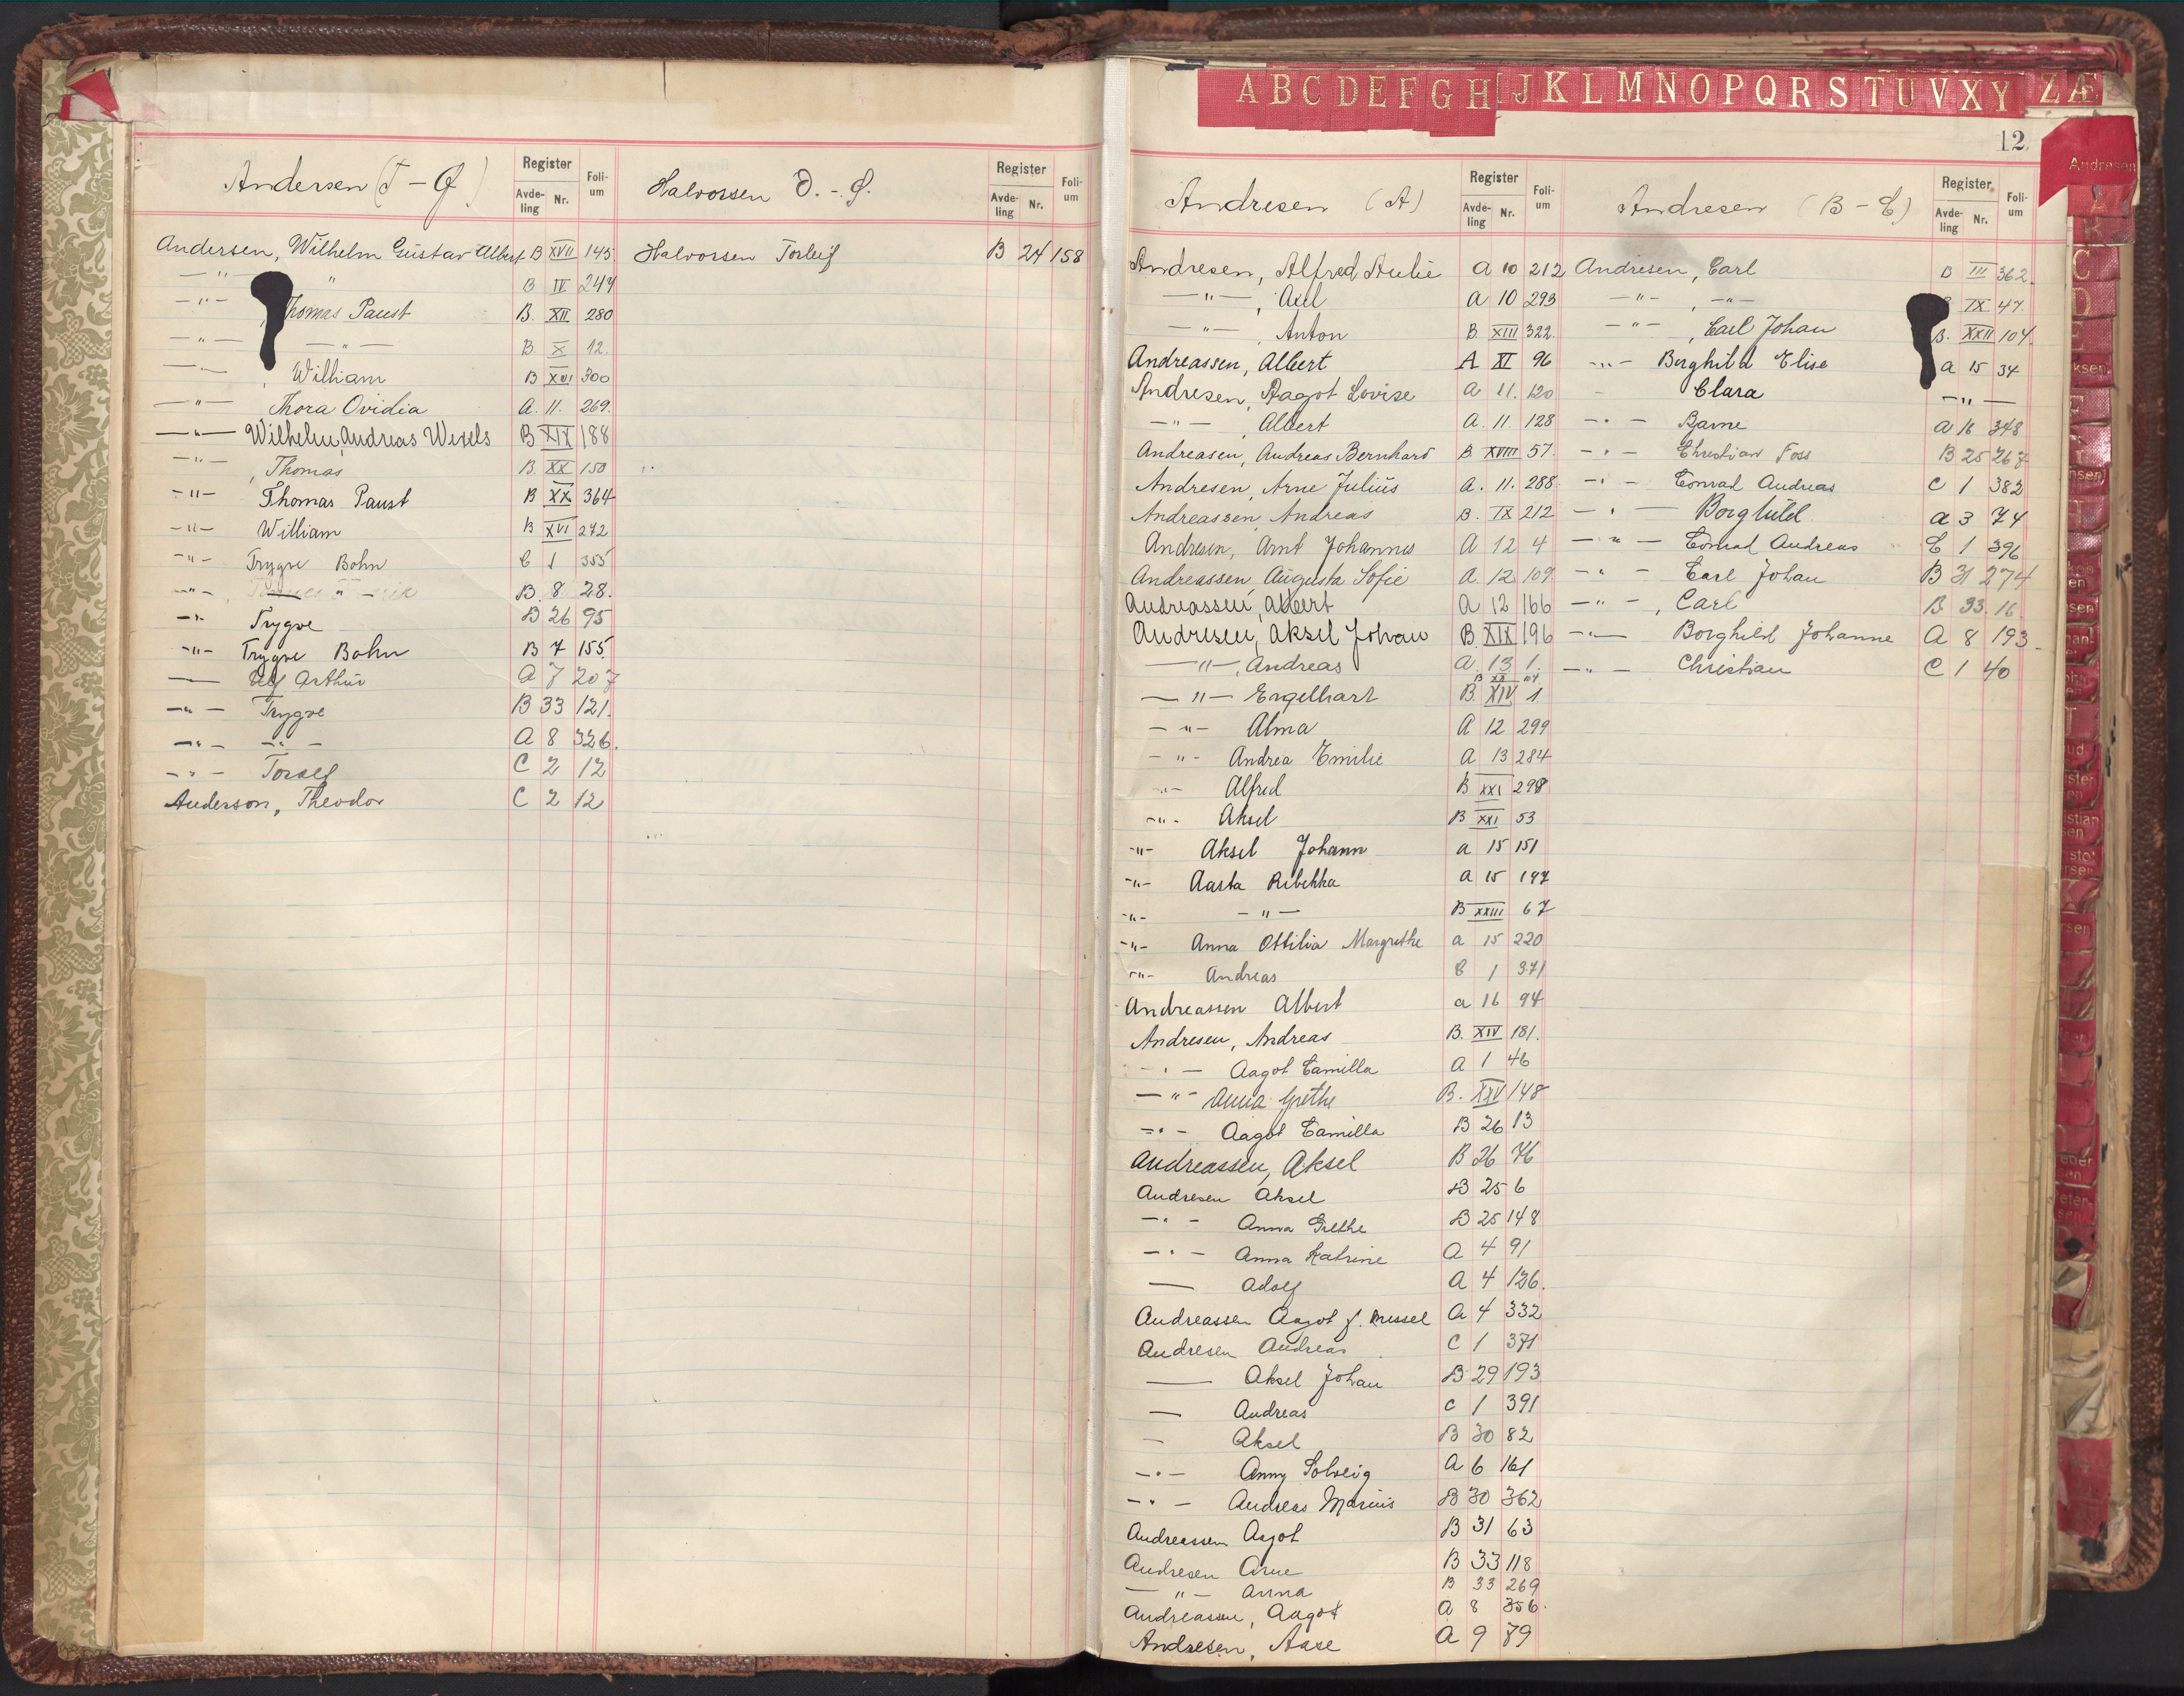 A B C D E F G H I J K L M N O P Q R S T U V X Y Z Æ
12.
Andresen
Andersen (T - Ø)
Register
Avde-
ling
Nr.
Foli-
um
Andersen, Wilhelm Gustav Albert B XVII 145
—"— " B IV 244
—"— , Thomas Paust B. XII 280
—"— —"— B. X 12.
—"— , William B XVI 300
—"— , Thora Ovidia A. 11. 269.
—"— Wilhelm Andreas Wesels B XIX 188
—"— , Thomas B. XX 150
—"— Thomas Paust B XX 364
—"— William B XVI 272
—"— Trygve Bohn C 1 355
—"— B. 8 28.
—"— Trygve B 26 95
—"— Trygve Bohn B 7 155
— Ulf Arthur A 7 207
—"— Trygve B 33 121.
—"— —"— A 8 326.
—"— Toralf C 2 12
Anderson, Theodor C 2 12
Halvorsen O. - Ø.
Register
Avde-
ling
Nr.
Foli-
um
Halvorsen Torleif B 24 158
Andresen (A)
Register
Avde-
ling
Nr.
Foli-
um
Andresen, Alfred Aulie A 10 212
—"— , Axel A 10 293
—"— , Anton B. XIII 322.
Andreassen, Albert A XI 96
Andresen, Aagot Lovise A 11. 120
—"— , Albert A. 11 128
Andreasen, Andreas Bernhard B. XVIII 57.
Andresen, Arne Julius A. 11. 288.
Andreassen, Andreas B. IX 212
Andresen, Arnt Johannes A 12 4
Andreassen, Augusta Sofie A. 12 109.
Andreassen, Albert A 12 166
Andresen, Aksel Johan B. XIX 196
—"—, Andreas A. 13 1.
B XX 104
—"— Engelhart B. XIV 1
—"— Alma A 12 299
—"— Andrea Emilie A 13 284
—"— Alfred B XXI 298
—"— Aksel B XXI 53
—"— Aksel Johann a 15 151
—"— Aasta Rebekka a 15 197
—"— —"— B XXIII 67
—"— Anna Ottilia Margrethe a 15 220
—"— Andreas C 1 371
Andreassen Albert a 16 94
Andresen, Andreas B. XIV 181.
—"— Aagot Camilla A 1 46
—"— Anna Grethe B. XXV 148
—"— Aagot Camilla B 26 13
Andreassen, Aksel B 26 76
Andresen Aksel B 25 6
—"— Anna Grethe B 25 148
—"— Anna Katrine A 4 91
— Adolf A 4 126.
Andreassen Aagot f. Mussel A 4 332
Andresen Andreas C 1 371
— Aksel Johan B 29 193
— Andreas C 1 391
— Aksel B 30 82
—"— Anny Solveig A 6 161
—"— Andreas Marius B 30 362
Andreassen Aagot B 31 63
Andresen Arne B 33 118
—"— Anna B 33 269
Andreassen, Aagot A 8 356.
Andresen, Aase A 9 89
Andresen (B - C)
Register
Avde-
ling
Nr.
Foli-
um
Andresen, Carl B III 362.
—"— , —"— IX 47.
—"— , Carl Johan B. XXII 104.
—"— Borghild Elise a 15 34
- Clara —"—
—"— Bjarne a 16 348
—"— Christian Foss B 25 267
—"— Conrad Andreas C 1 382
—"— Borghild a 3 74
—"— Conrad Andreas C 1 396
—"— Carl Johan B 31 274
—"— , Carl B 33. 16.
—"— Borghild Johanne A 8 193.
—"— Christian C 1 40